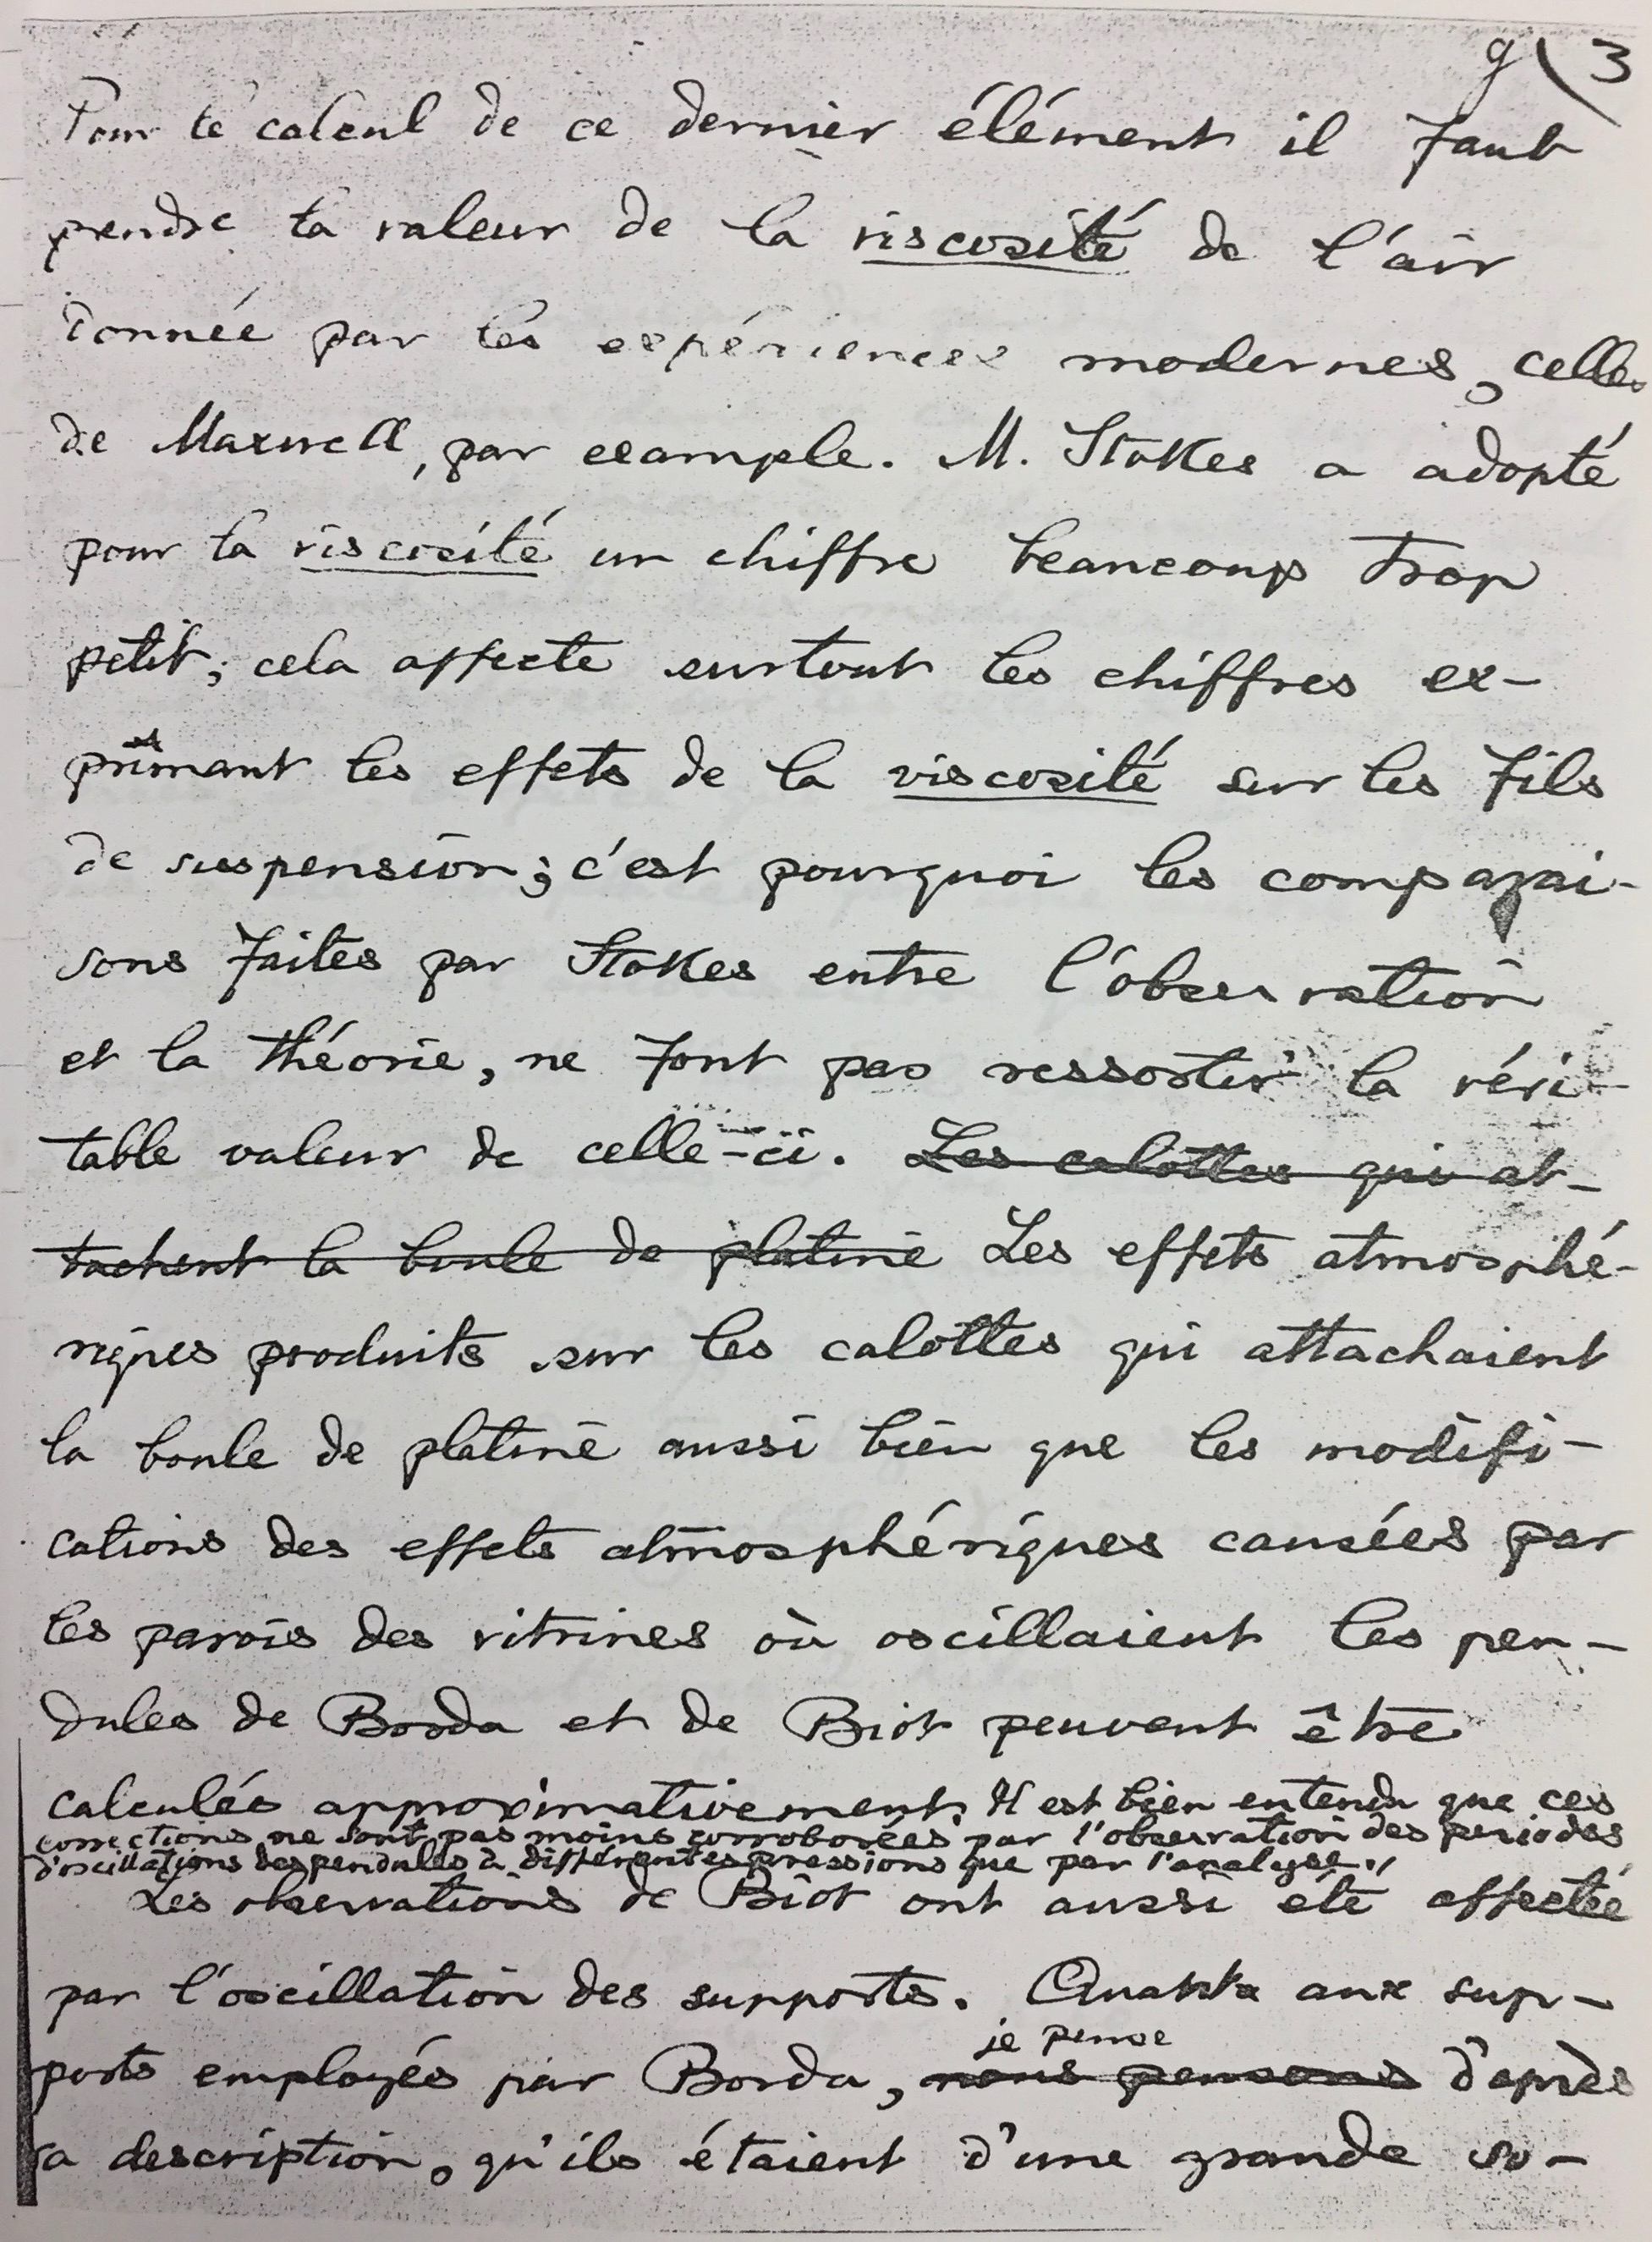 g( 3
Pour le calcul de ce dernier élément il faut
prendre la valeur de la viscosité de l'air
donnée par les expériences modernes, celles
de Maxwell, par example. M. Stokes a adopté
pour la viscosité un chiffre beaucoup trop
petit; cela affecte surtout les chiffres ex-
primant les effets de la viscosité sur les fils
de suspension; c'est pourquoi les comparai-
sons faites par Stokes entre l'observation
et la théorie, ne font pas ressortir la véri-
table valeur de celle-ci. Les calottes qui at-
tachent la boule de platine Les effets atmosphé-
riques produits sur les calottes qui attachaient
la boule de platine aussi bien que les modifi-
cations des effets atmosphériques causées par
les parois des vitrines où oscillaient les pen-
dules de Borda et de Biot peuvent être
calculés approximativement. Il est bien entendu que ces
corrections ne sont pas moins corroborées par l'observation des periodes
d'oscillations des pendules à différentes pressions que par l'analyse.
Les observations de Biot ont aussi été affectée
par l'oscillation des supports. aux sup-
je pense
ports employés par Borda, nous pensons d'après
sa description, qu'ils étaient d'une grande so-